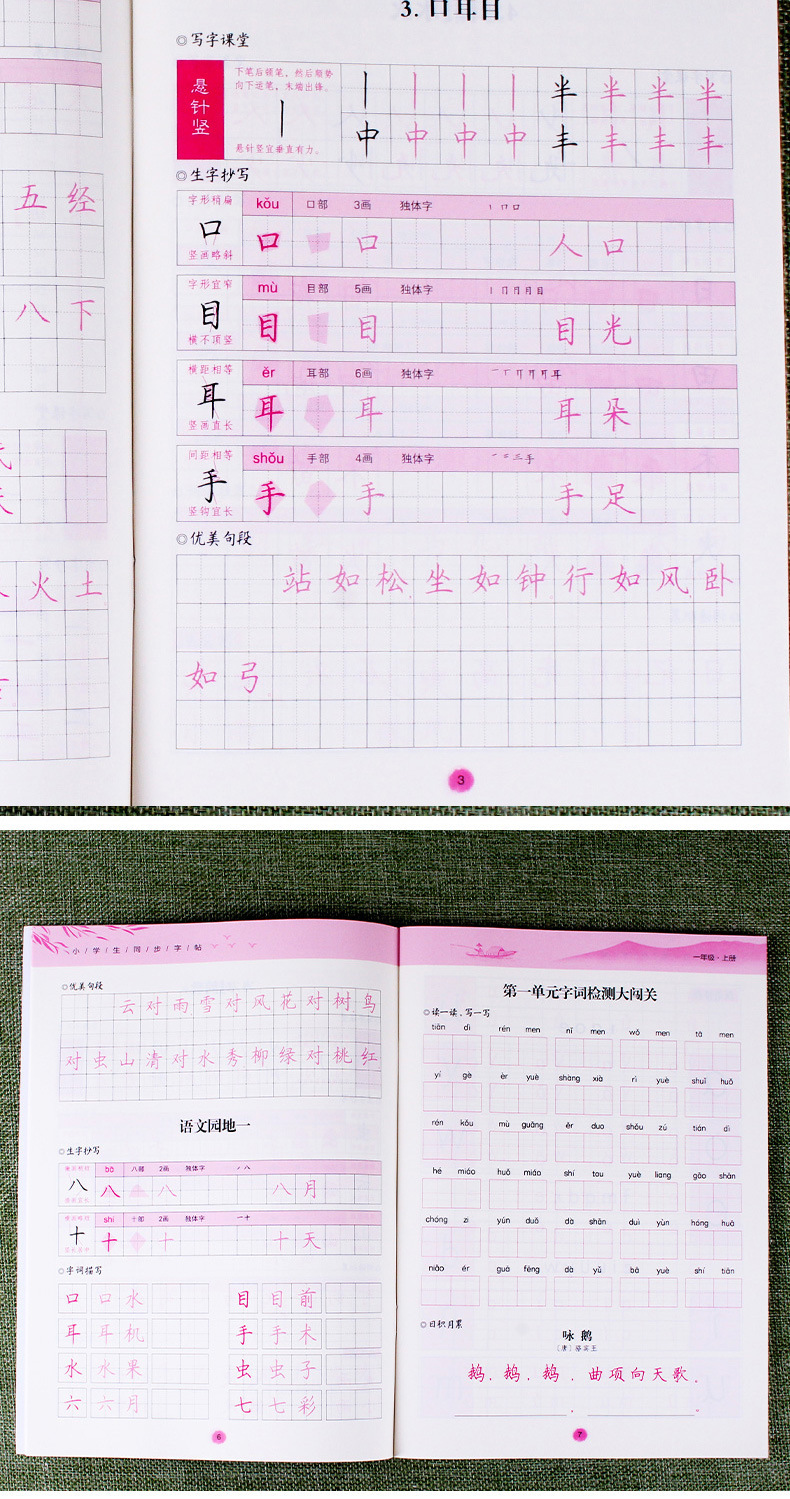 五经
八下
火土
3. 口耳目
◎写字课堂
悬针竖
下笔后顿笔，然后顺势
向下运笔，末端出锋。
悬针竖宜垂直有力。
丨丨丨丨半半半半
中中中中丰丰丰丰
◎生字抄写
字形稍扁 kǒu 口部 3画 独体字
口 口 口 人口
竖画略斜
字形宜窄 mù 目部 5画 独体字
目 目 目 目光
横不顶竖
横距相等 ěr 耳部 6画 独体字
耳 耳 耳 耳朵
竖画直长
间距相等 shǒu 手部 4画 独体字
手 手 手 手足
竖钩宜长
◎优美句段
站如松,坐如钟,行如风,卧
如弓
3
小/学/生/同/步/字/帖
◎优美句段
云对雨雪对风花对树鸟
对虫山清对水秀柳绿对桃红
语文园地一
◎生字抄写
bā 八部 2画 独体字
八 八 八 八月
shí 十部 2画 独体字
十 十 十 十天
◎字词描写
口 口水 目 目前
耳 耳机 手 手术
水 水果 虫 虫子
六 六月 七 七彩
6
一年级·上册
第一单元字词检测大闯关
◎读一读、写一写
tiān dì rén men nǐ men wǒ men tā men
yí gè èr yuè shàng xià rì yuè shuǐ huǒ
rén kǒu mù guāng ěr duo shǒu zú tián dì
hé miáo huǒ miáo shí tou yuè liang gāo shān
chóng zi yún duǒ dà shān duì yùn hóng huā
niǎo ér guā fēng dà yǔ bā yuè shí tiān
◎日积月累
咏鹅
〔唐〕骆宾王
鹅,鹅,鹅,曲项向天歌。
7